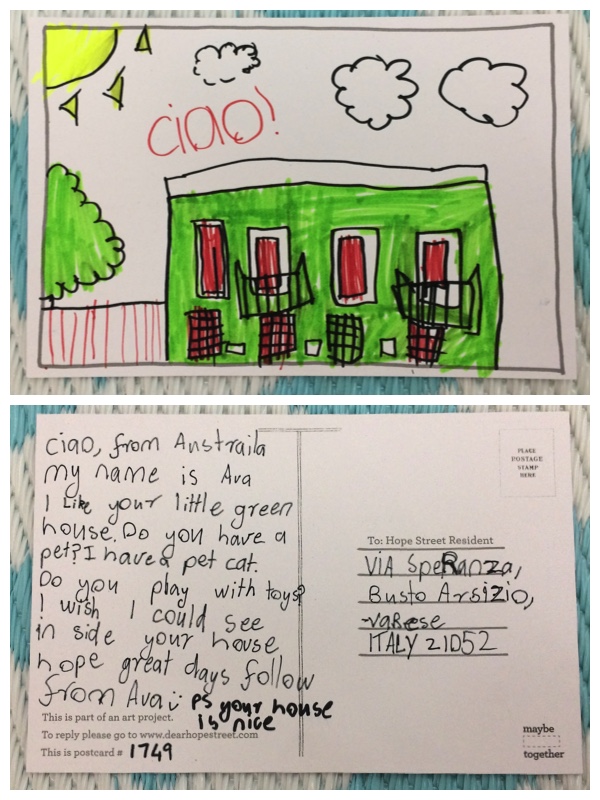 ciao!
ciao, from Austraila
my name is Ava
I Like your little green
house. Do you have a
pet? I have a pet cat.
Do you play with toys?
I wish I could see
in side your house
hope great days follow
from Ava
ps your house
is nice
This is part of an art project.
To reply please go to www.dearhopestreet.com
This is postcard # 1749
PLACE
POSTAGE
STAMP
HERE
To: Hope Street Resident
VIA SpeRanza,
Busto Arsizio,
vaRese
ITALY 21052
maybe
together